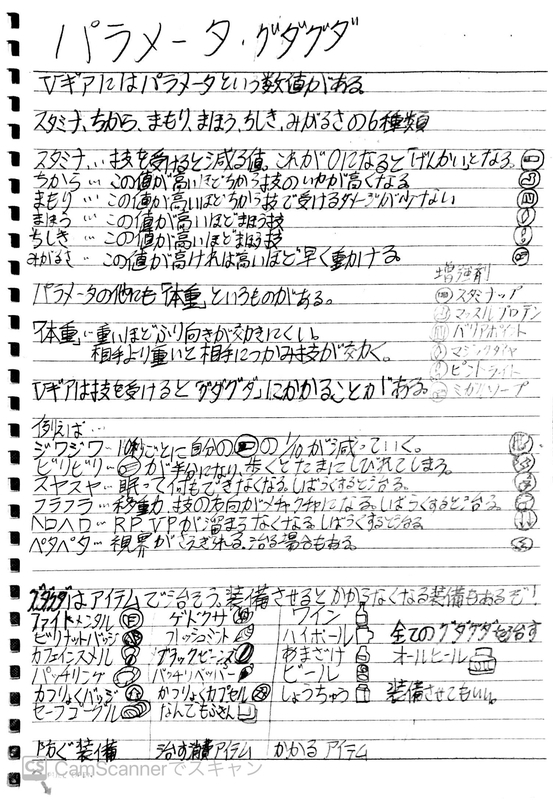 パラメータ・グダグダ
Vギアにはパラメータという数値がある
スタミナ、ちから、まもり、まほう、ちしき、みがるさの6種類
スタミナ… 技を受けると減る値。これが0になると「げんかい」となる。
ちから… この値が高いほどちから技のいりょくが高くなる
まもり… この値が高いほどちから技で受けるダメージが少ない
まほう… この値が高いほどまほう技
ちしき… この値が高いほどまほう技
みがるさ… この値が高ければ高いほど早く動ける。
増強剤
スタミナップ
マッスルプロテン
バリアポイント
マジックダイヤ
ピントライト
ミガルソープ
パラメータの他にも「体重」というものがある。
「体重」… 重いほどふり向きが効きにくい。
相手より重いと相手につかみ技が効く。
Vギアは技を受けると「グダグダ」にかかることがある。
例えば…
ジワジワ… 10秒ごとに自分の の1/10が減っていく。
ビリビリ… が半分になり、歩くとたまにしびれてしまう。
スヤスヤ… 眠って何もできなくなる。しばらくすると治る。
フラフラ… 移動、技の方向がメチャクチャになる。しばらくすると治る。
ヘロヘロ… RP、VPが溜まらなくなる。しばらくすると治る
ベタベタ… 視界がさえぎられる。治る場合もある。
グダグダはアイテムで治そう。装備させるとかからなくなる装備もあるぞ!
ファイトメンタル ゲドクサ ワイン
ビリナットバッジ ハイボール 全てのグダグダを治す
カフェインスメル ブラックビーンズ あまざけ オールヒール
パッチリング パッチリペッパー ビール
かつりょくバッジ かつりょくカプセル しょうちゅう 装備させてもいい。
セーフゴーグル なんでもふきん
防ぐ装備 治す消費アイテム かかるアイテム
CS CamScannerでスキャン